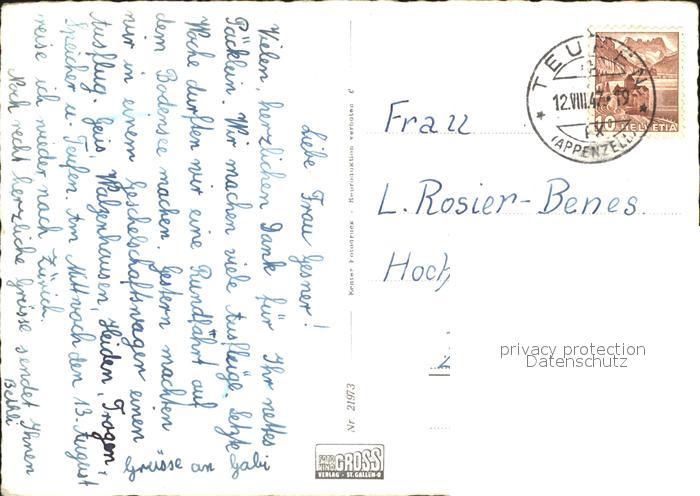 Liebe Frau Gesner!
Vielen, herzlichen Dank für Ihr nettes
Päcklein. Wir machen viele Ausflüge. Letzte
Woche durften wir eine Rundfahrt auf
dem Bodensee machen. Gestern machten
wir in einem Geschelschaftswagen einen
Ausflug. Gais, Walzenhausen, Heiden, Trogen,
Speicher u. Teufen. Am Mittwoch den 13. August
reise ich wieder nach Zürich.
Noch recht herzliche Grüsse sendet Ihnen
Bethli
Grüsse an Gabi
Nr. 21973
FOTO UND GROSS
VERLAG - ST. GALLEN-O
TEUFEN
12.VIII.47
(APPENZELL)
10 HELVETIA
Frau
L. Rosier-Benes
Hoch
privacy protection
Datenschutz